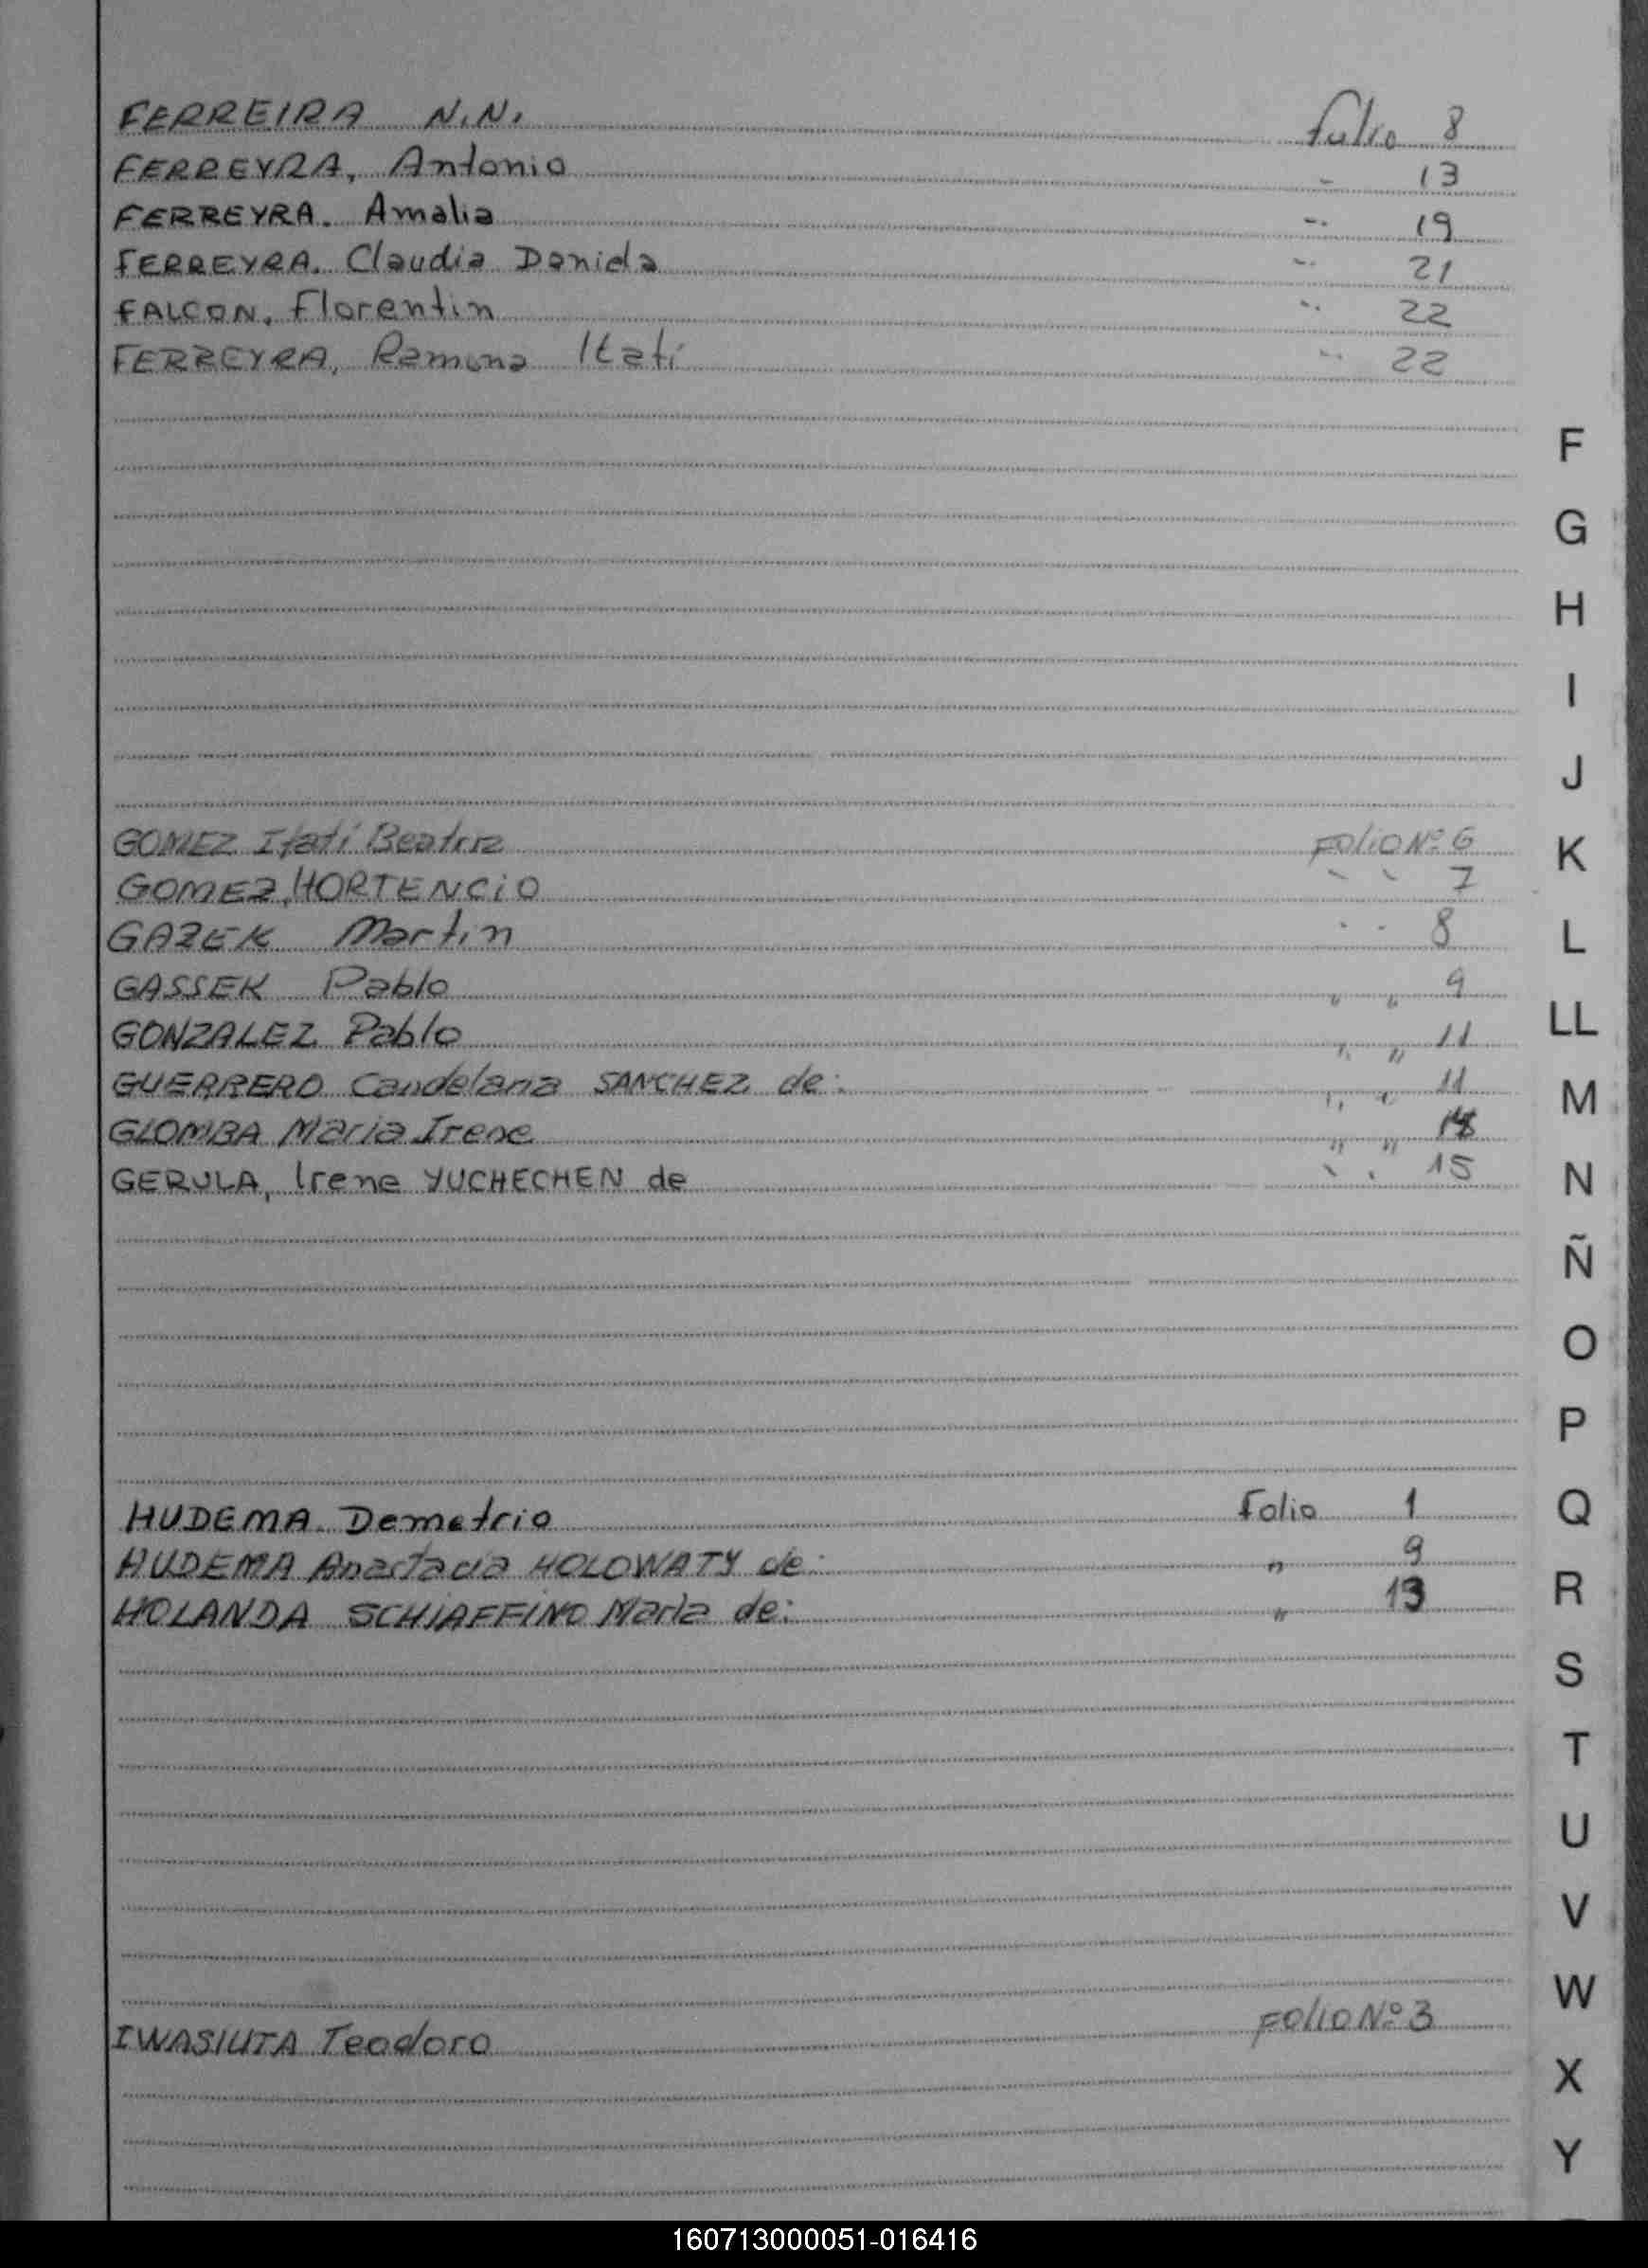 FERREIRA N.N. folio 8
FERREYRA, Antonio " 13
FERREYRA. Amalia " 19
FERREYRA. Claudia Daniela " 21
FALCON. Florentin " 22
FERREYRA, Ramona Itatí " 22
F
G
H
I
J
GOMEZ Itatí Beatriz FOLIO Nº 6
K
GOMEZ, HORTENCIO " " 7
GAZEK Martin " " 8
L
GASSEK Pablo " " 9
LL
GONZALEZ Pablo " " 11
GUERRERO Candelaria SANCHEZ de: " " 11
M
GLOMBA Maria Irene " "
GERULA, Irene YUCHECHEN de " " 15
N
Ñ
O
P
HUDEMA Demetrio Folio 1
Q
HUDEMA Anastacia HOLOWATY de: " 9
R
HOLANDA SCHIAFFINO Maria de: " 13
S
T
U
V
W
IWASIUTA Teodoro FOLIO Nº 3
X
Y
160713000051-016416